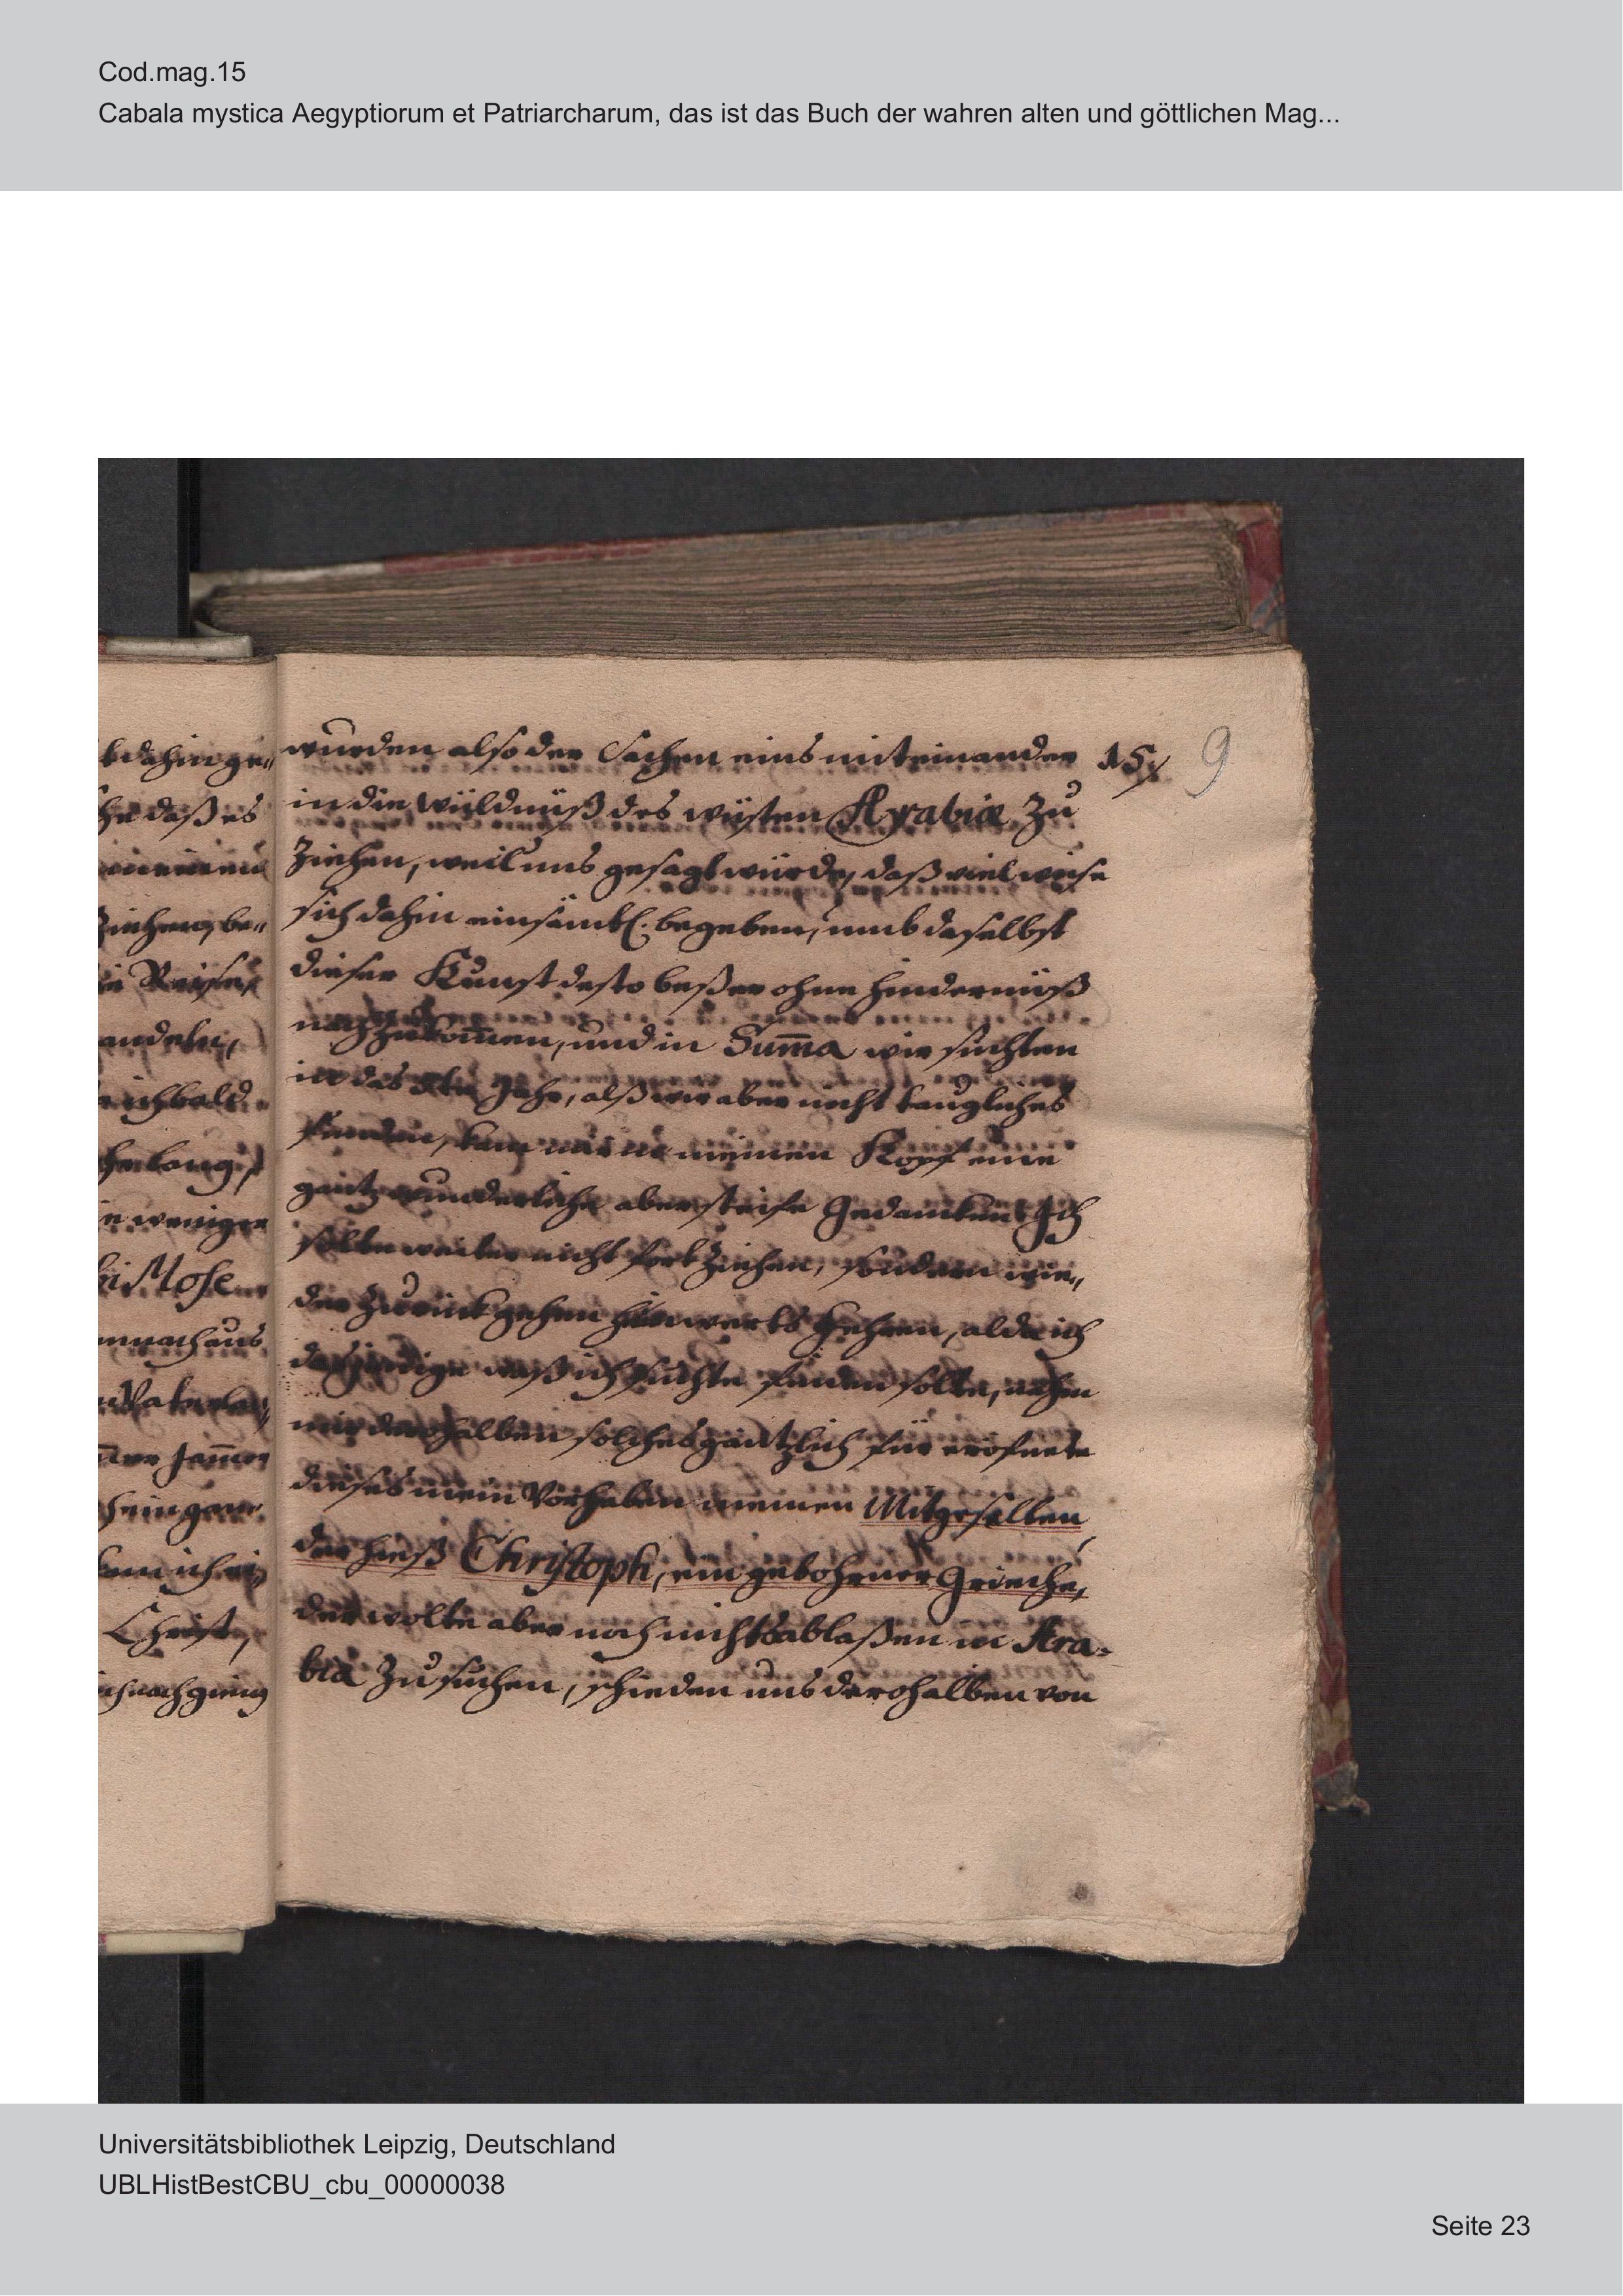 Cod.mag.15
Cabala mystica Aegyptiorum et Patriarcharum, das ist das Buch der wahren alten und göttlichen Mag...
wurden also der Sachen eins miteinander 15. 9
in die wüldnüß des wüsten Arabiæ zu
ziehen, weil uns gesagt würde, daß viel weise
sich dahin einsämbl. begeben, umb daselbst
dieser Kunst desto beßer ohne hindernüß
nachzukom̄en, und in Sum̄a wir suchten
in das Jahr, alß wir aber nicht taugliches
funden, kam mir in meinen Kopf eine
gantz wunderliche aber steife Gedancken Ich
solte weiter nicht fort ziehen, sondern wie„
der zurück gehen heimwerts kehren, alda ich
dasjenige waß ich suchte finden solte, nahm
mir derohalben solches gäntzlich für eröfnete
dieses mein Vorhaben meinen Mitgesellen
der hieß Christoph, ein gebohrner Grieche,
der wolte aber noch nicht ablaßen in Ara-
bia zu suchen, schieden uns derohalben von
dahin ge„
daß es
ziehen, be„
Reise,
andeln,
ich bald
lang,
weniger
Mose
nach aus
Christ,
nach gieng
Universitätsbibliothek Leipzig, Deutschland
UBLHistBestCBU_cbu_00000038
Seite 23